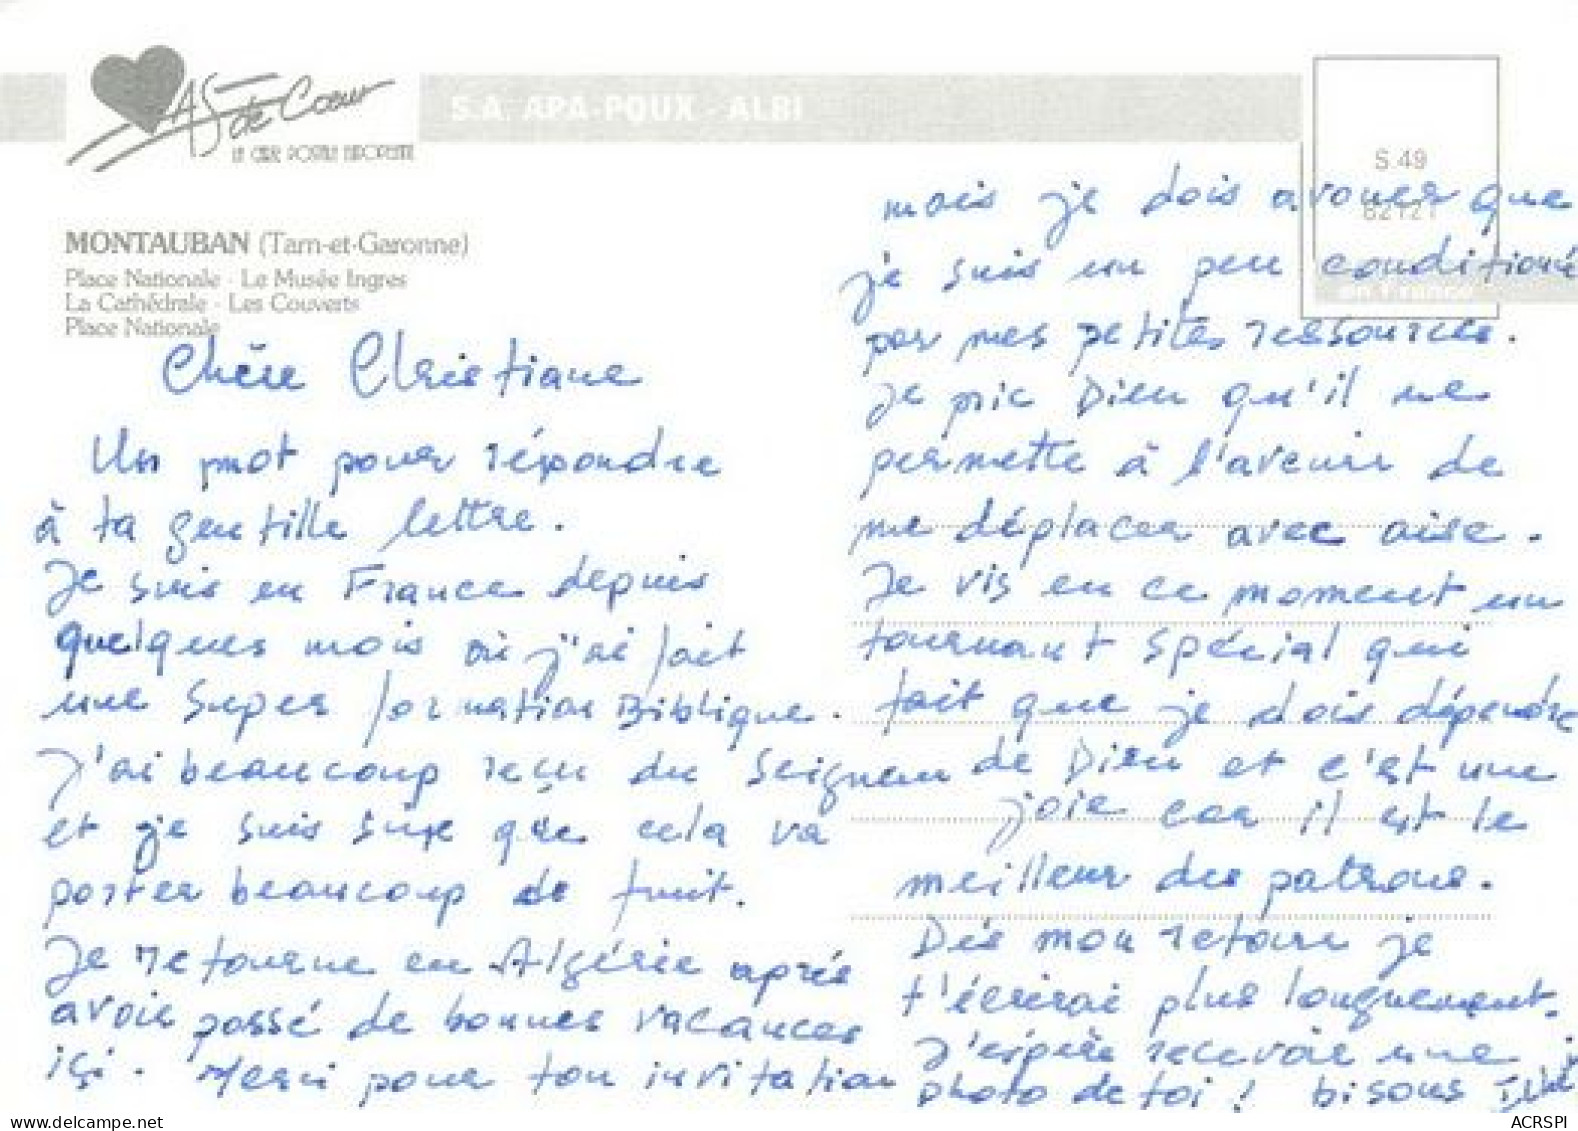 AS de Cœur
LA CARTE POSTALE EUROPEENNE
S.A. APA-POUX - ALBI
S.49
82121
MONTAUBAN (Tarn-et-Garonne)
Place Nationale - Le Musée Ingres
La Cathédrale - Les Couverts
Place Nationale
Chère Christiane
Un mot pour répondre
à ta gentille lettre.
Je suis en France depuis
quelques mois où j'ai fait
une Super formation Biblique.
J'ai beaucoup reçu du Seigneur
et je suis sûre que cela va
porter beaucoup de fruit.
Je retourne en Algérie après
avoir passé de bonnes vacances
içi. Merci pour ton invitation
mais je dois avouer que
je suis un peu conditionné
par mes petites ressources.
Je prie Dieu qu'il me
permette à l'avenir de
me déplacer avec aise.
Je vis en ce moment un
tournant spécial qui
fait que je dois dépendre
de Dieu et c'est une
joie car il est le
meilleur des patrons.
Dès mon retour je
t'écrirai plus longuement.
J'espère recevoir une
photo de toi ! bisous
delcampe.net
ACRSPI